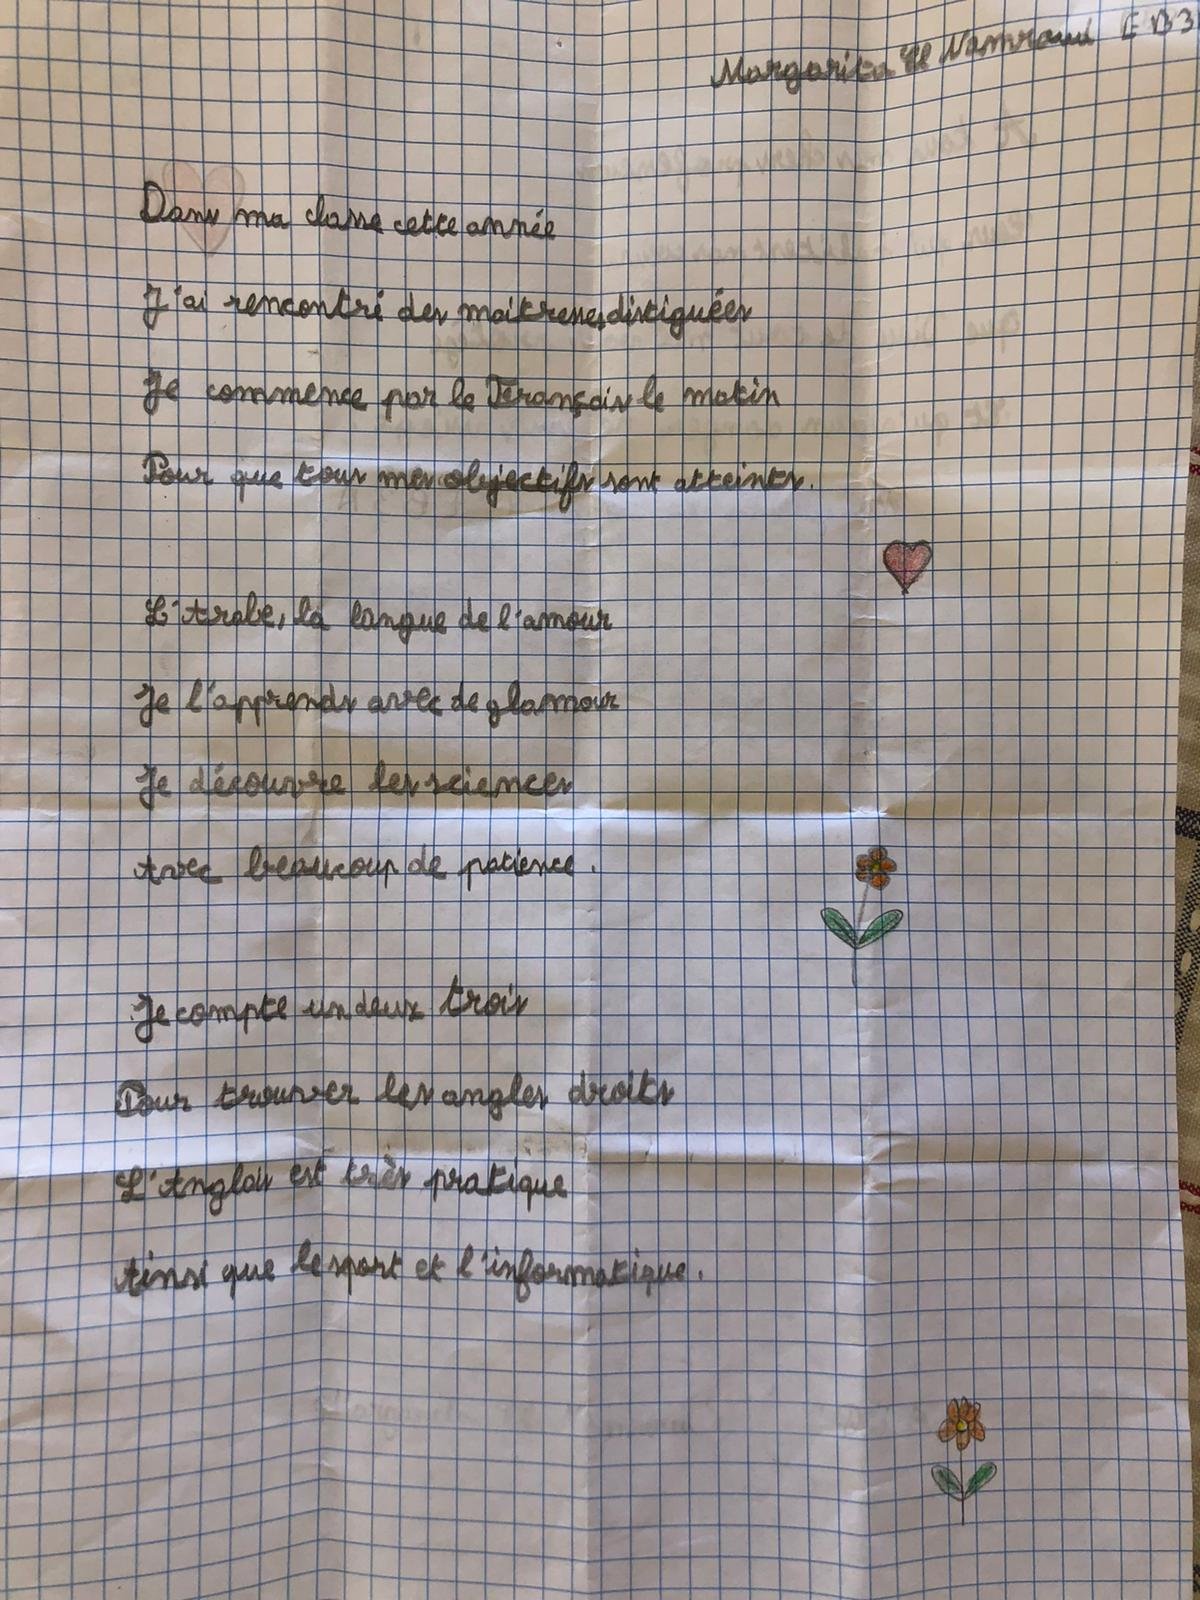 Margarita El Namroud EB3
Dans ma classe cette année
J'ai rencontré des maitresses distiguées
Je commence par le Français le matin
Pour que tous mes objectifs sont atteints.
L'Arabe, la langue de l'amour
Je l'apprends avec de glamour
Je découvre les sciences
Avec beaucoup de patience.
Je compte un deux trois
Pour trouver les angles droits
L'Anglais est très pratique
Ainsi que le sport et l'informatique.